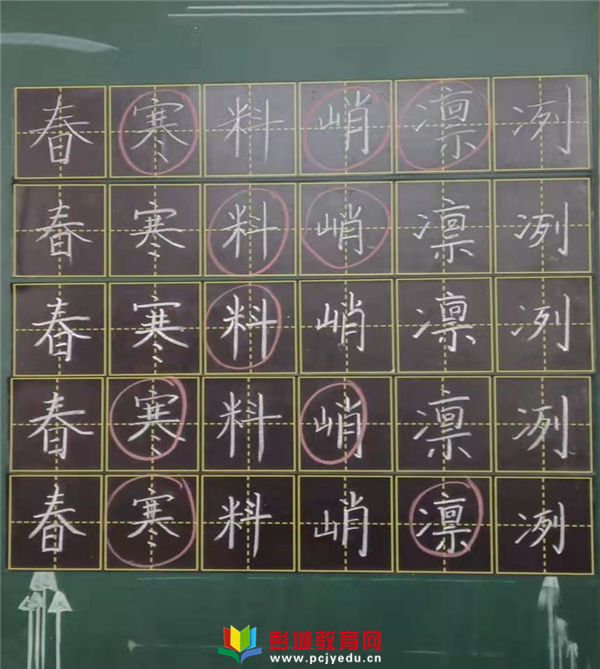 春寒料峭凛冽
春寒料峭凛冽
春寒料峭凛冽
春寒料峭凛冽
春寒料峭凛冽
彭城教育网
www.pcjyedu.cn